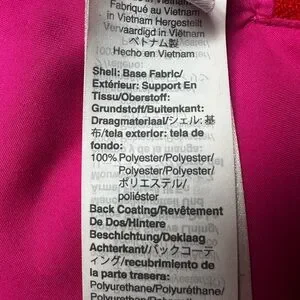 Fabriqué au Vietnam
in Vietnam Hergestellt
Vervaardigd in Vietnam
ベトナム製
Hecho en Vietnam
Shell: Base Fabric/
Extérieur: Support En
Tissu/Oberstoff:
Grundstoff/Buitenkant:
Draagmateriaal/シェル: 基
布/tela exterior: tela de
fondo:
100% Polyester/Polyester/
Polyester/Polyester/
ポリエステル/
poliéster
Back Coating/Revêtement
De Dos/Hintere
Beschichtung/Deklaag
Achterkant/バックコーテ
ィング/recubrimiento de
la parte trasera:
Polyurethane/Polyuréthane/